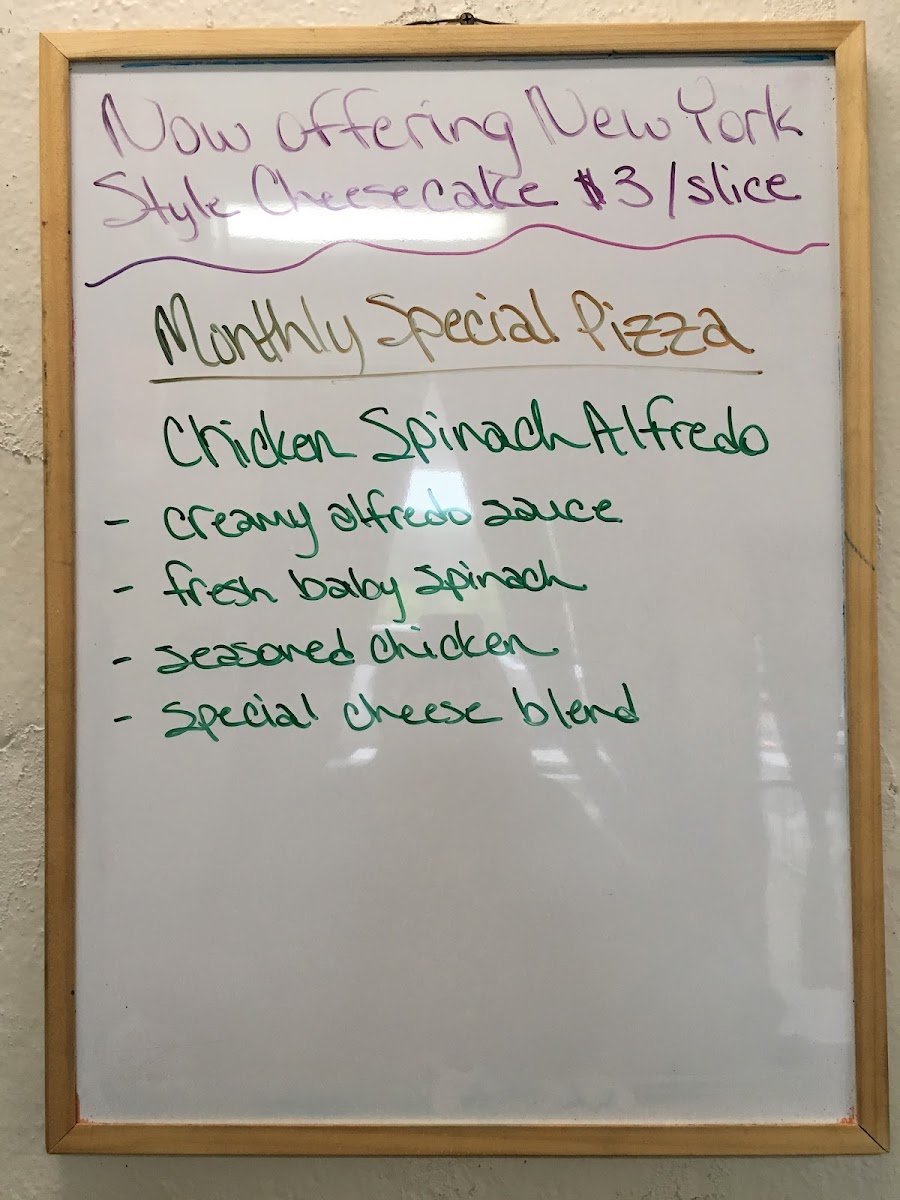 Now offering New York
Style Cheesecake $3/slice
Monthly Special Pizza
Chicken Spinach Alfredo
- creamy alfredo sauce
- fresh baby spinach
- seasoned chicken
- special cheese blend